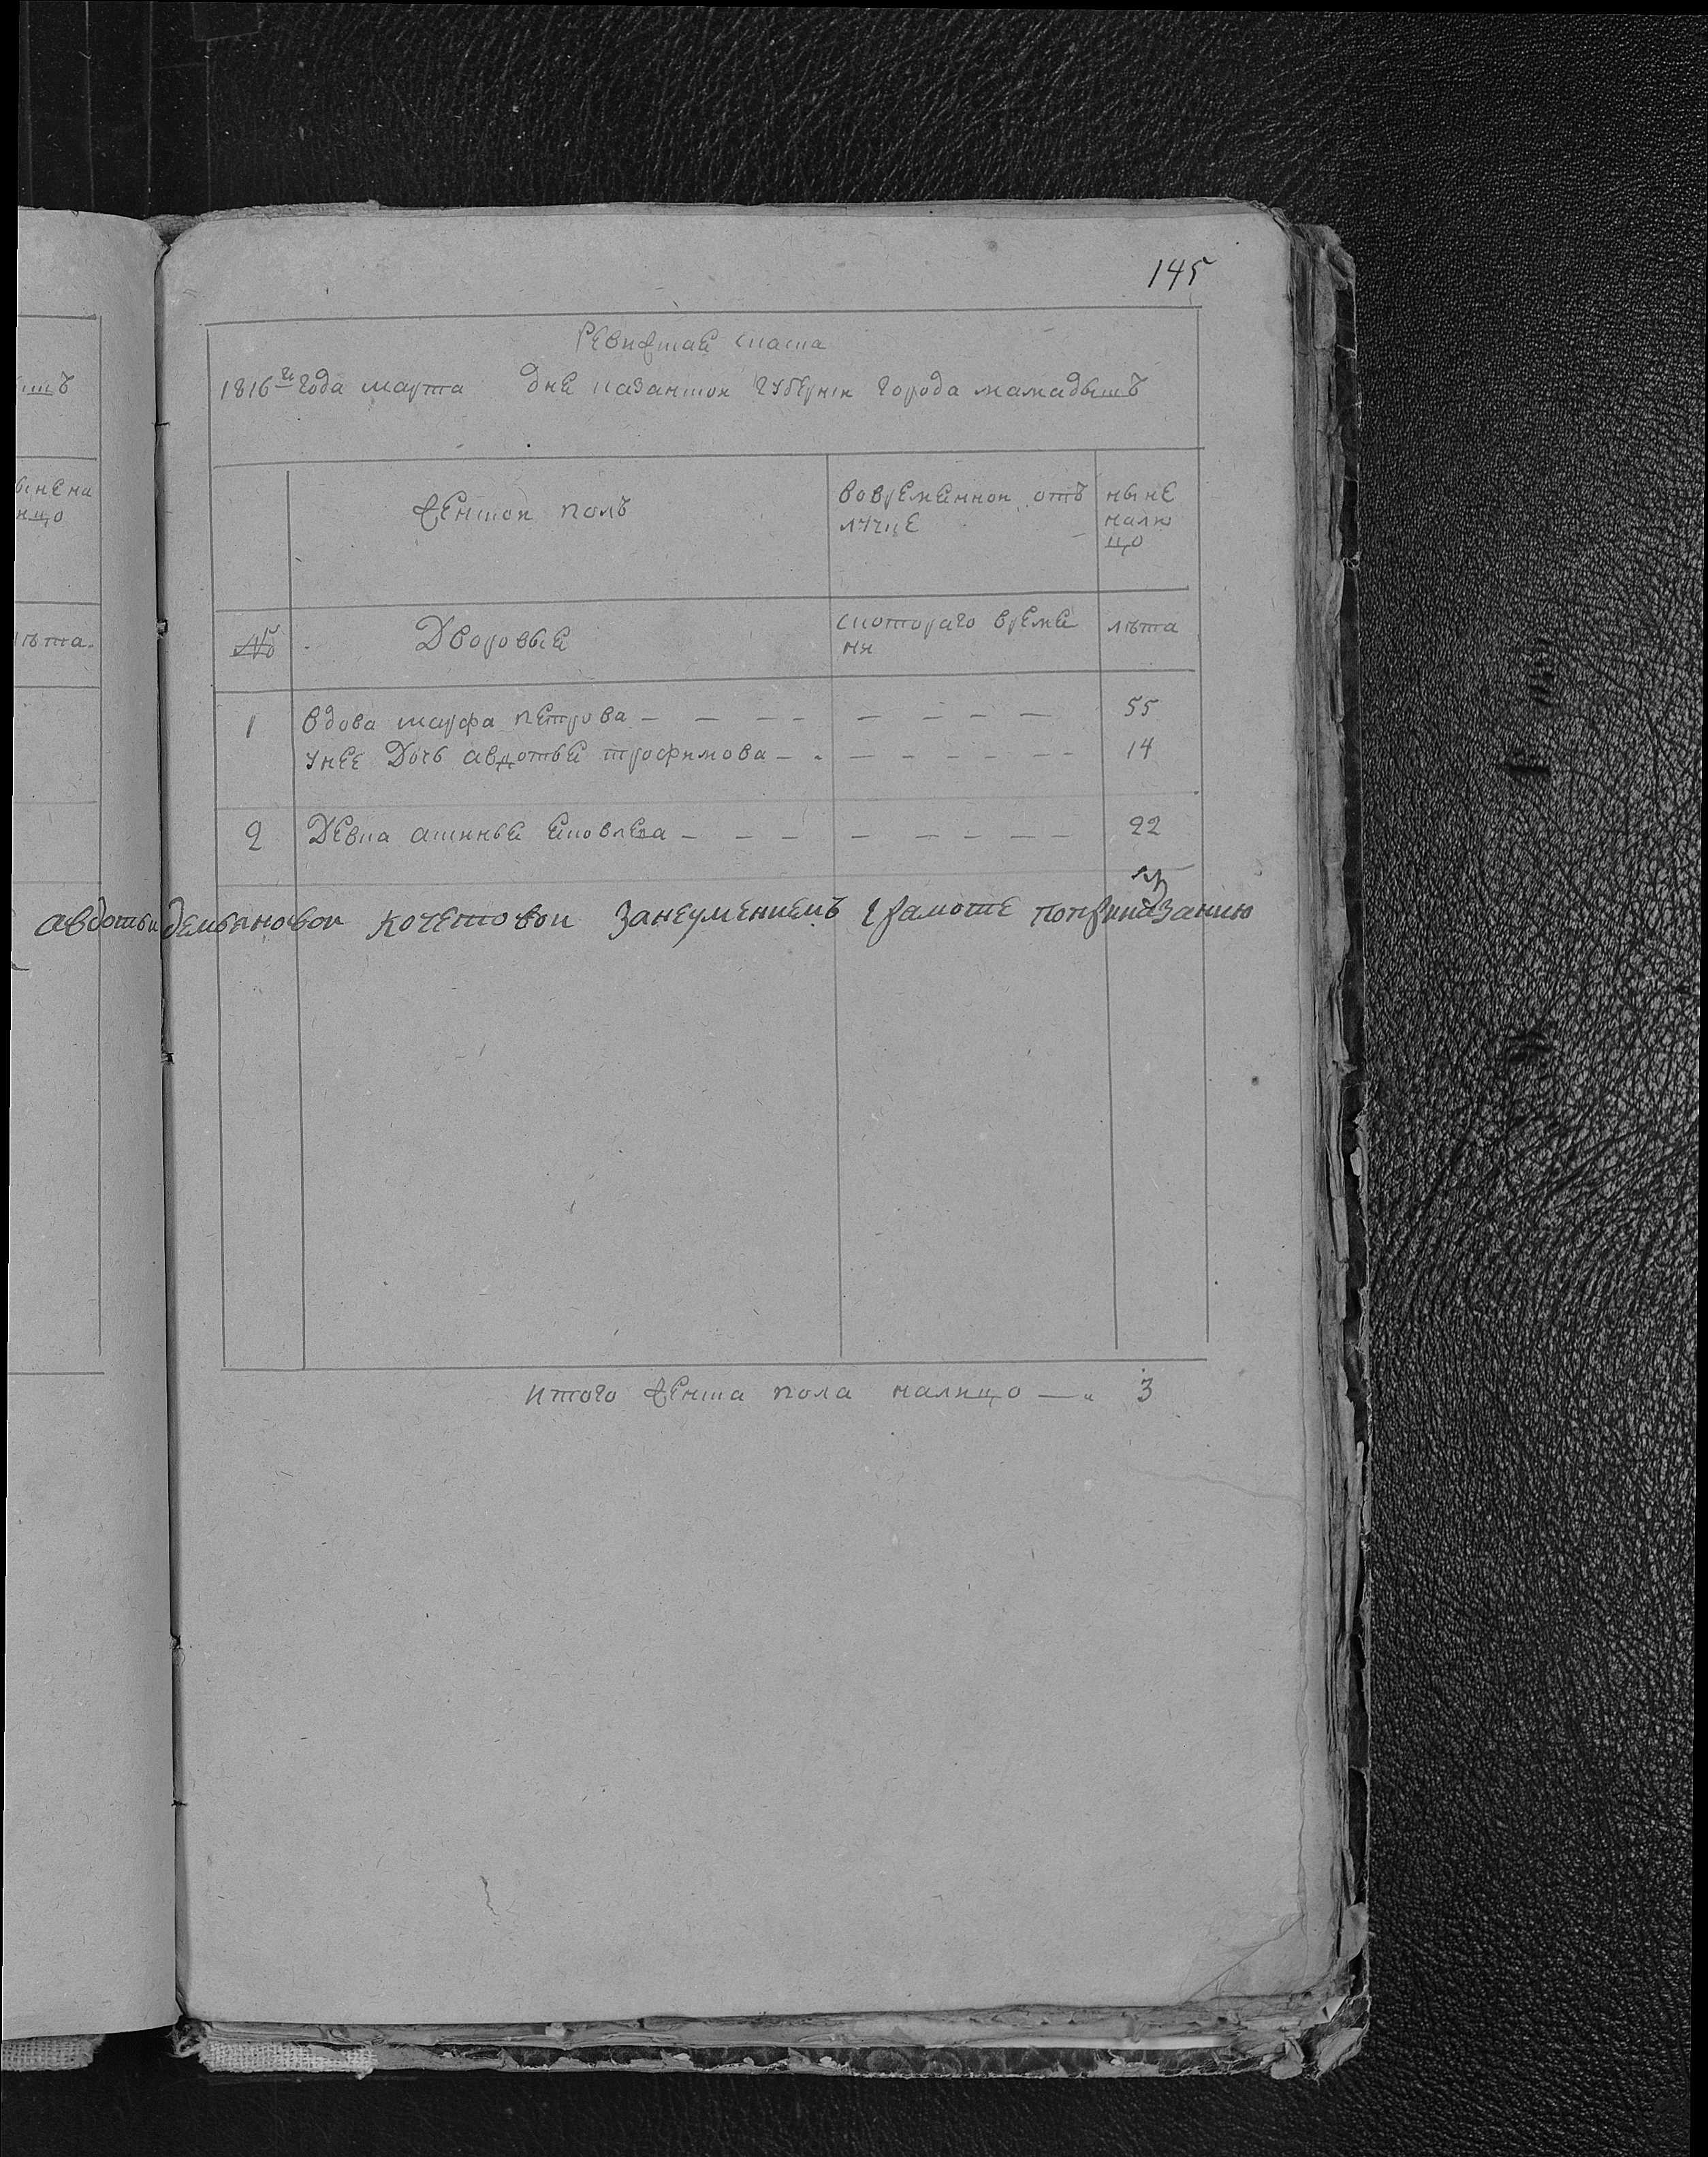 145
Ревижская сказка
1816го года марта дня казанской губернии города мамадышъ
женской полъ
вовремянной отъ
лучке
ныне
нали
цо
№
Дворовые
скотораго време
ни
лѣта
1 вдова марфа петрова — — — — — — — — 55
унее Дочь авдотья трофимова — — — — — — — 14
2 Девка аксинья яковлева — — — — — — — — 22
авдотьи демьяновой кочетовой занеумениемъ грамоте поприказанию
итого женска пола налицо — „ 3